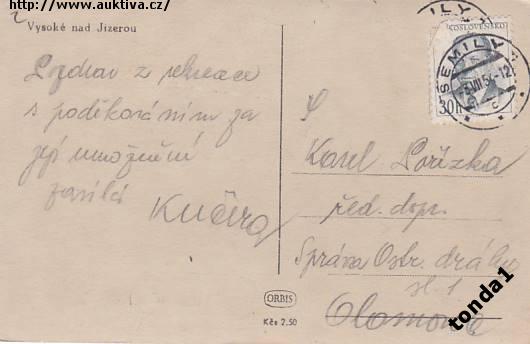 http://www.auktiva.cz/
Vysoké nad Jizerou
Pozdrav z rekreace
s poděkováním za
její umožnění
zasílá
Kučera
ČESKOSLOVENSKO
30 h
SEMILY
P.
Karel Pořízka
řed. dopr.
Správa Ostr. dráhy
sl. 1
Olomouc
ORBIS
Kčs 2.50
tonda1